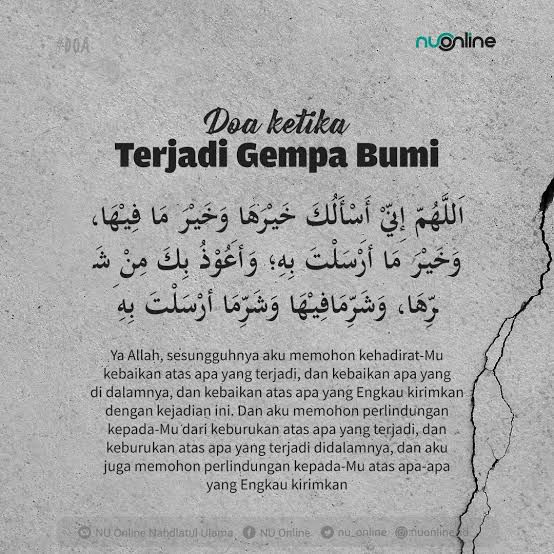 #DOA
nuonline
Doa ketika
Terjadi Gempa Bumi
اَللَّهُمَّ إِنِّيْ أَسْأَلُكَ خَيْرَهَا وَخَيْرَ مَا فِيْهَا،
وَخَيْرَ مَا أَرْسَلْتَ بِهِ؛ وَأَعُوْذُ بِكَ مِنْ شَ
رِّهَا، وَشَرِّمَافِيْهَا وَشَرِّمَا أَرْسَلْتَ بِهِ
Ya Allah, sesungguhnya aku memohon kehadirat-Mu
kebaikan atas apa yang terjadi, dan kebaikan apa yang
di dalamnya, dan kebaikan atas apa yang Engkau kirimkan
dengan kejadian ini. Dan aku memohon perlindungan
kepada-Mu dari keburukan atas apa yang terjadi, dan
keburukan atas apa yang terjadi didalamnya, dan aku
juga memohon perlindungan kepada-Mu atas apa-apa
yang Engkau kirimkan
NU Online Nahdlatul Ulama NU Online nu_online